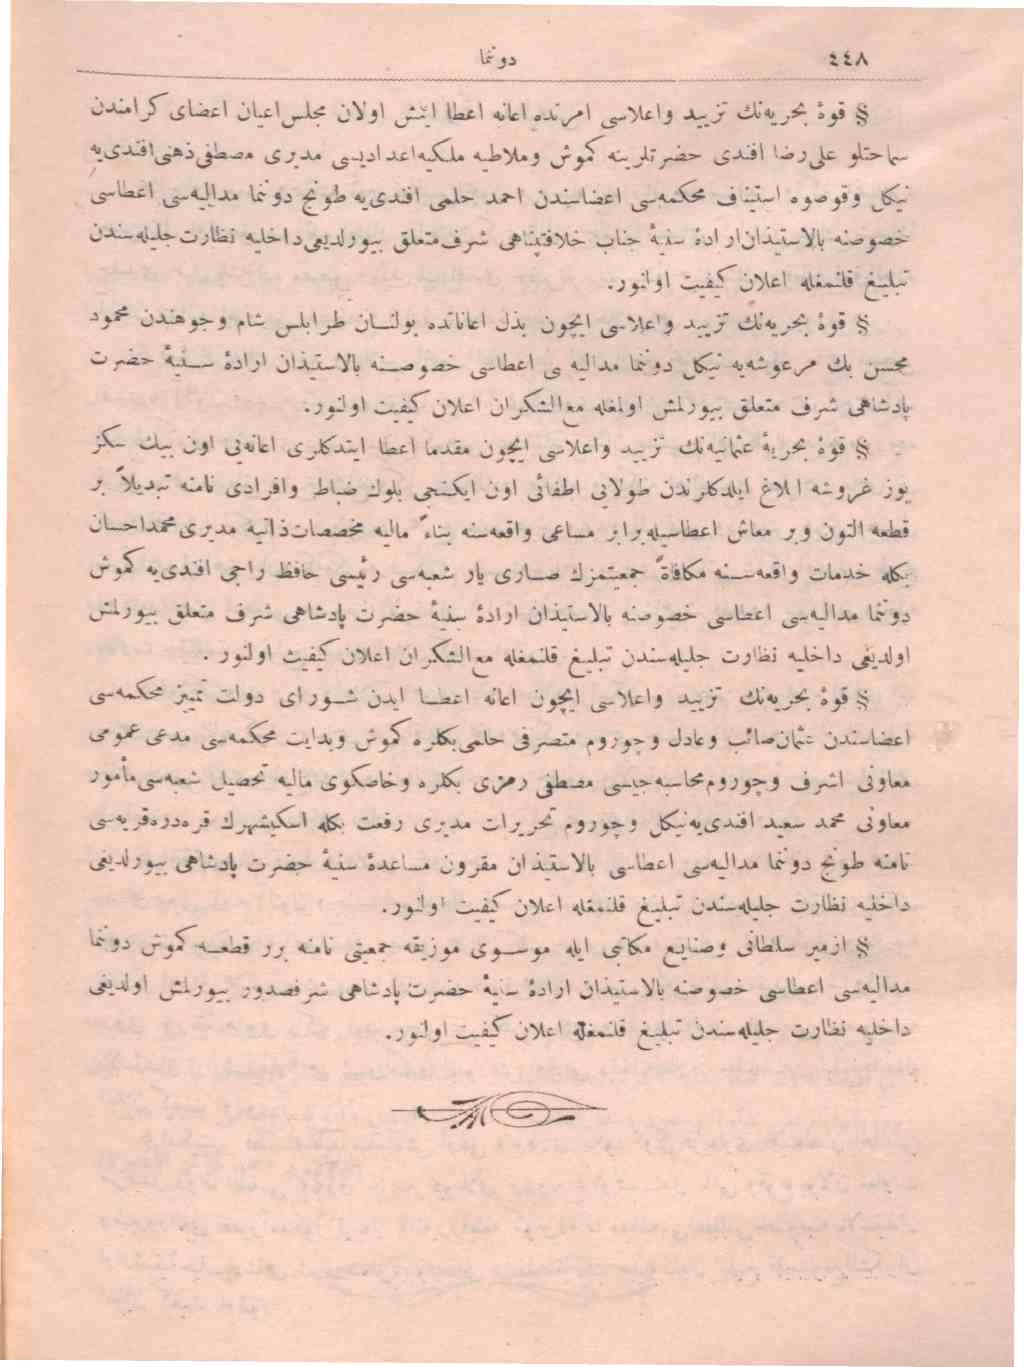 ٤٤٨
دوننما
§ قوۀ بحریه‌نك تزیید واعلاسی امرنده اعانه اعطا ایتمش اولان مجلس اعیان اعضای كرامندن
سماحتلو علی رضا افندی حضرتلرینه كموش وملاطیه ملكیه اعدادیسی مدیری مصطفی ذهنی افندی‌یه
نیكل وقوصوه استیناف محكمه‌سی اعضاسندن احمد حلمی افندی‌یه طونج دوننما مدالیه‌سی اعطاسی
خصوصنه بالاستیذان ارادۀ سنیۀ جناب خلافتپناهی شرف متعلق بیورلدیغی داخلیه نظارت جلیله‌سندن
تبلیغ قلنمغله اعلان كیفیت اولنور.
§ قوۀ بحریه‌نك تزیید واعلاسی ایچون بذل اعاناتده بولنان طرابلس شام وجوهندن محمود
محسن بك مرعوشه‌یه نیكل دوننما مدالیه سی اعطاسی خصوصنه بالاستیذان ارادۀ سنیۀ حضرت
پادشاهی شرف متعلق بیورلمش اولمغله مع‌الشكران اعلان كیفیت اولنور.
§ قوۀ بحریۀ عثمانیه‌نك تزیید واعلاسی ایچون مقدما اعطا ایتدكلری اعانه‌یی اون بیك سكز
یوز غروشه ابلاغ ایلدكلرندن طولایی اطفائی اون ایكنجی بلوك ضباط وافرادی نامنه تبدیلاً بر
قطعه التون وبر معاش اعطاسیله برابر مساعی واقعه‌سنه بناءً مالیه مخصصات ذاتیه مدیری محمد احسان
بكله خدمات واقعه‌سنه مكافاةً جمعیتمزك صاری یار شعبه‌سی رئیسی حافظ راجی افندی‌یه كموش
دوننما مدالیه‌سی اعطاسی خصوصنه بالاستیذان ارادۀ سنیۀ حضرت پادشاهی شرف متعلق بیورلمش
اولدیغی داخلیه نظارت جلیله‌سندن تبلیغ قلنمغله مع‌الشكران اعلان كیفیت اولنور .
§ قوۀ بحریه‌نك تزیید واعلاسی ایچون اعانه اعطا ایدن شورای دولت تمییز محكمه‌سی
اعضاسندن عثمان صائب وعادل وچوروم متصرفی حلمی بكلره كموش وبدایت محكمه‌سی مدعی عمومی
معاونی اشرف وچوروم محاسبه‌جیسی مصطفی رمزی بكلره وخاصكوی مالیه تحصیل شعبه‌سی مأمور
معاونی محمد سعید افندی‌یه نیكل وچوروم تحریرات مدیری رفعت بكله اسكیشهرك قره‌دره قریه‌سی
نامنه طونج دوننما مدالیه‌سی اعطاسی بالاستیذان مقرون مساعدۀ سنیۀ حضرت پادشاهی بیورلدیغی
داخلیه نظارت جلیله‌سندن تبلیغ قلنمغله اعلان كیفیت اولنور.
§ ازمیر سلطانی وصنایع مكاتبی ایله موسوی موزیقه جمعیتی نامنه برر قطعه كموش دوننما
مدالیه‌سی اعطاسی خصوصنه بالاستیذان ارادۀ سنیۀ حضرت پادشاهی شرفصدور بیورلمش اولدیغی
داخلیه نظارت جلیله‌سندن تبلیغ قلنمغله اعلان كیفیت اولنور.